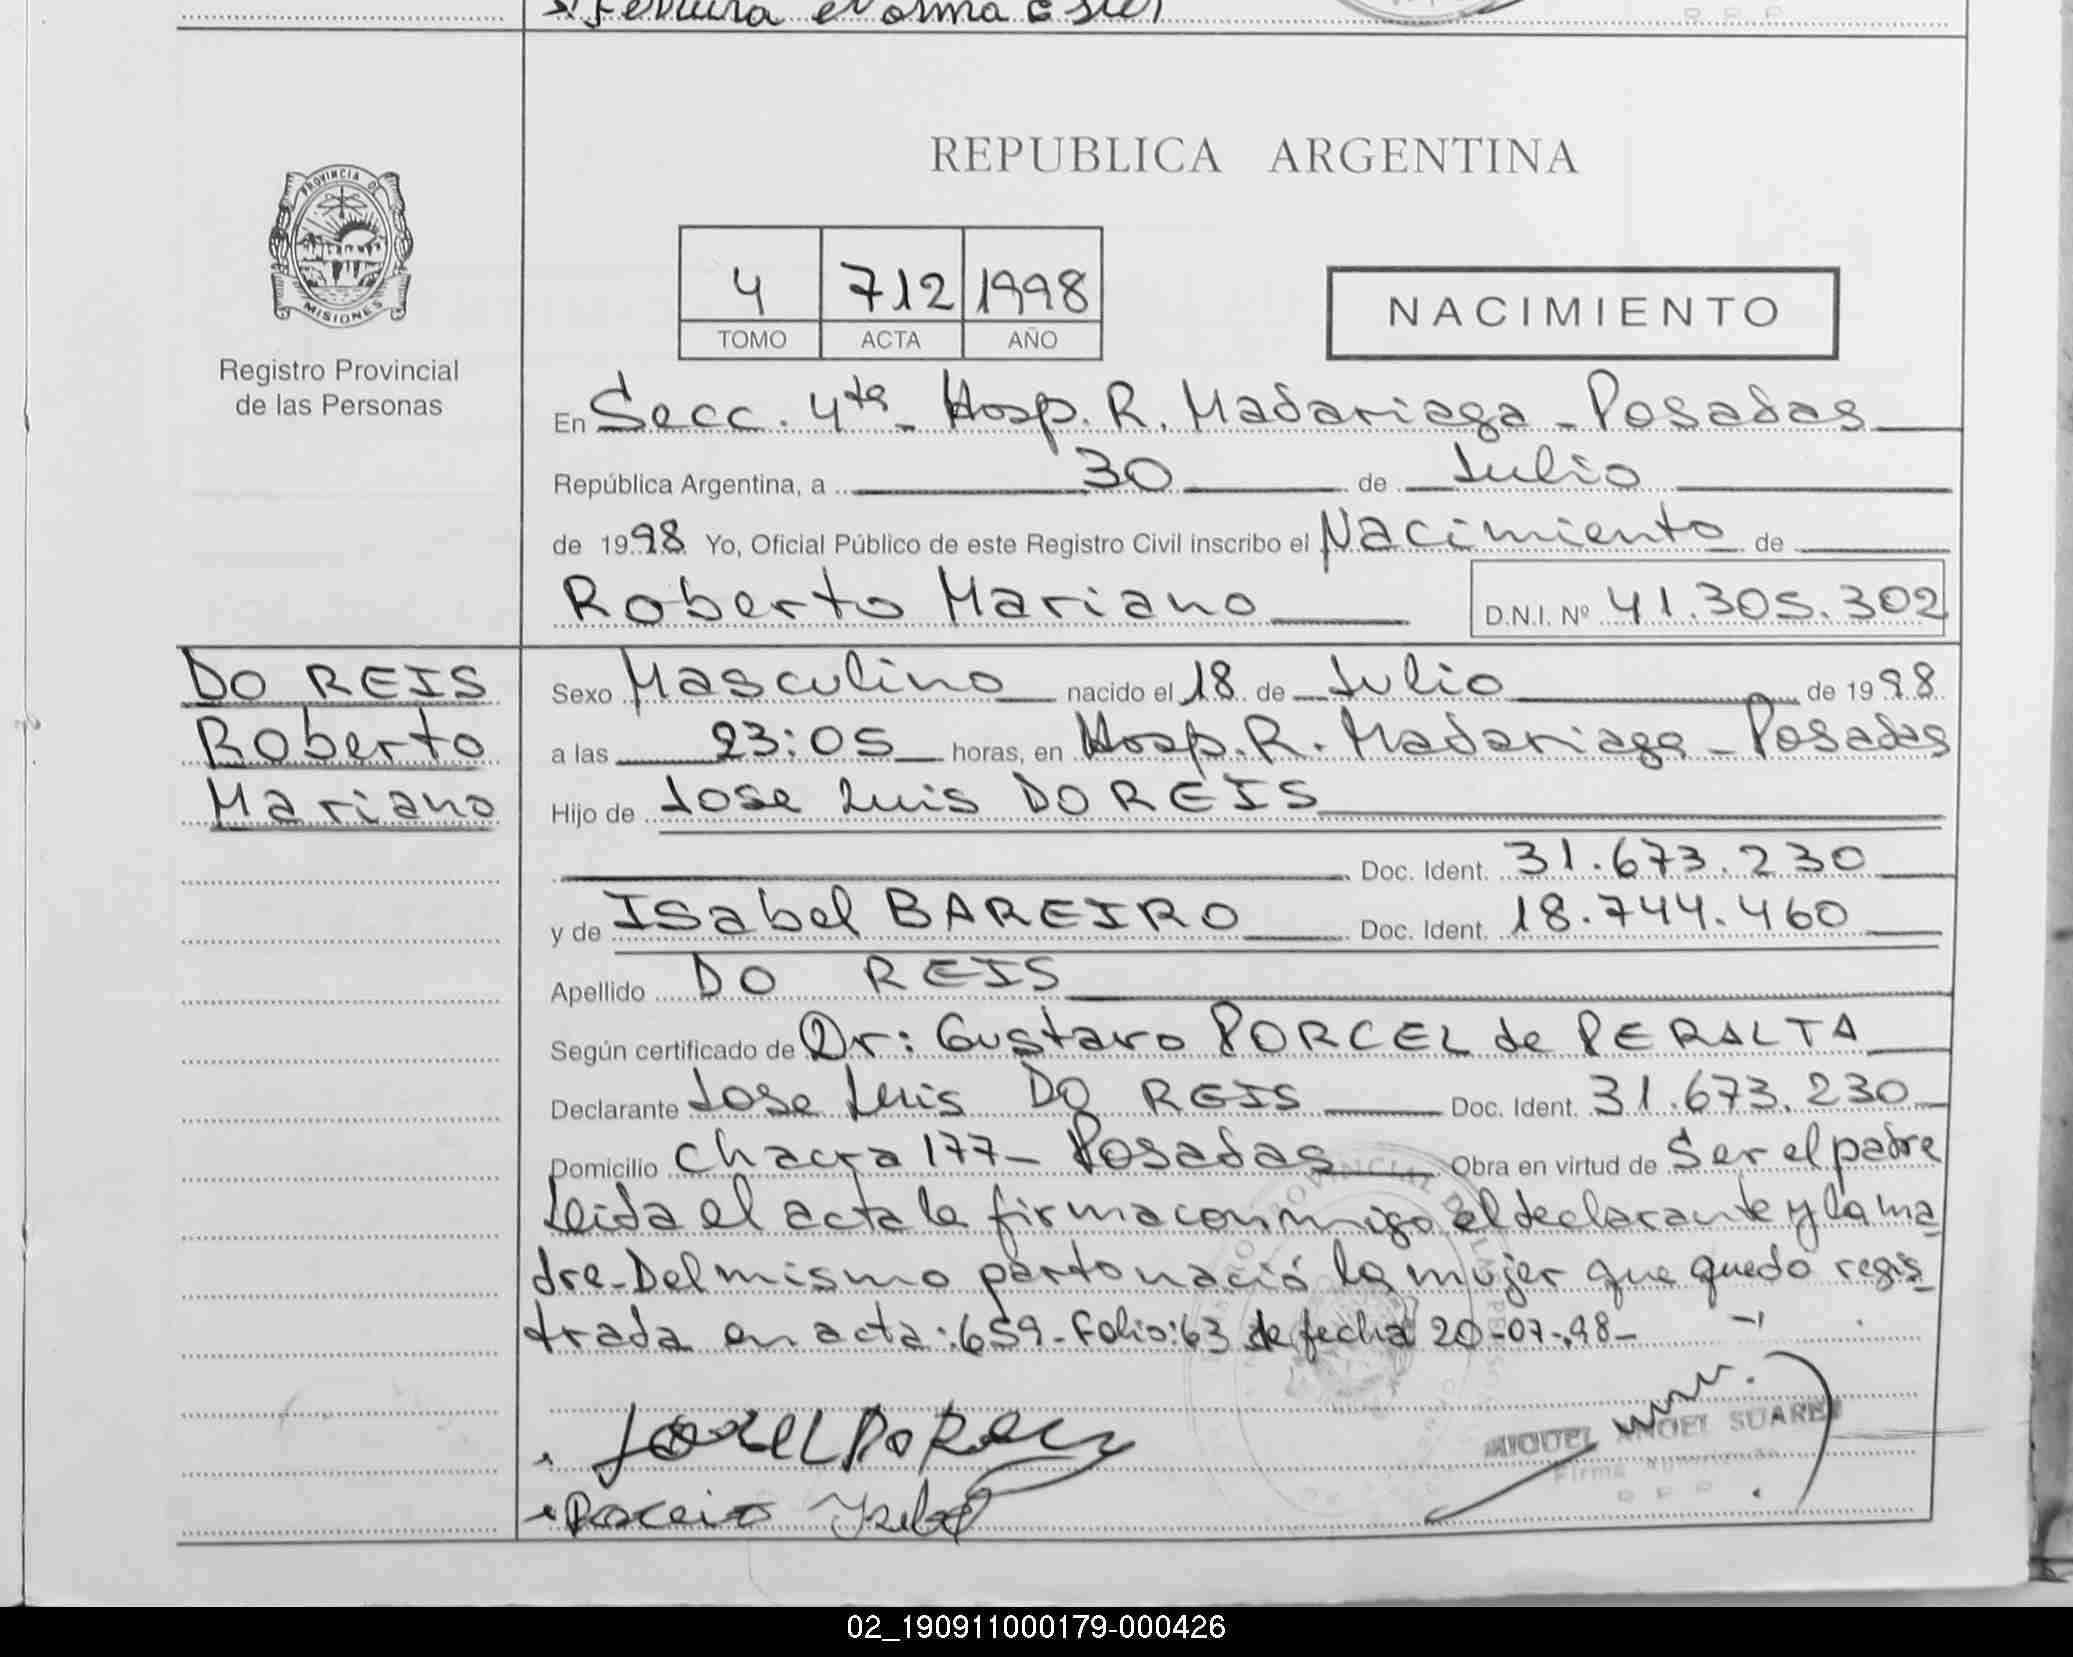 REPUBLICA ARGENTINA
PROVINCIA DE
MISIONES
Registro Provincial
de las Personas
4 712 1998
TOMO ACTA AÑO
NACIMIENTO
En Secc. 4ta - Hosp. R. Madariaga - Posadas
República Argentina, a 30 de Julio
de 1998 Yo, Oficial Público de este Registro Civil inscribo el Nacimiento de
Roberto Mariano D.N.I. Nº 41.305.302
DO REIS
Roberto
Mariano
Sexo Masculino nacido el 18 de Julio de 1998
a las 23:05 horas, en Hosp. R. Madariaga - Posadas
Hijo de Jose Luis DO REIS
Doc. Ident. 31.673.230
y de Isabel BAREIRO Doc. Ident. 18.744.460
Apellido DO REIS
Según certificado de Dr: Gustavo PORCEL de PERALTA
Declarante Jose Luis DO REIS Doc. Ident. 31.673.230
Domicilio Chacra 177 - Posadas Obra en virtud de Ser el padre
Leida el acta la firma conmigo el declarante y la ma
dre - Del mismo parto nació la mujer que quedo regis_
trada en acta: 659 - Folio: 63 de fecha 20-07-98-
MIGUEL ANGEL SUAREZ
02_190911000179-000426